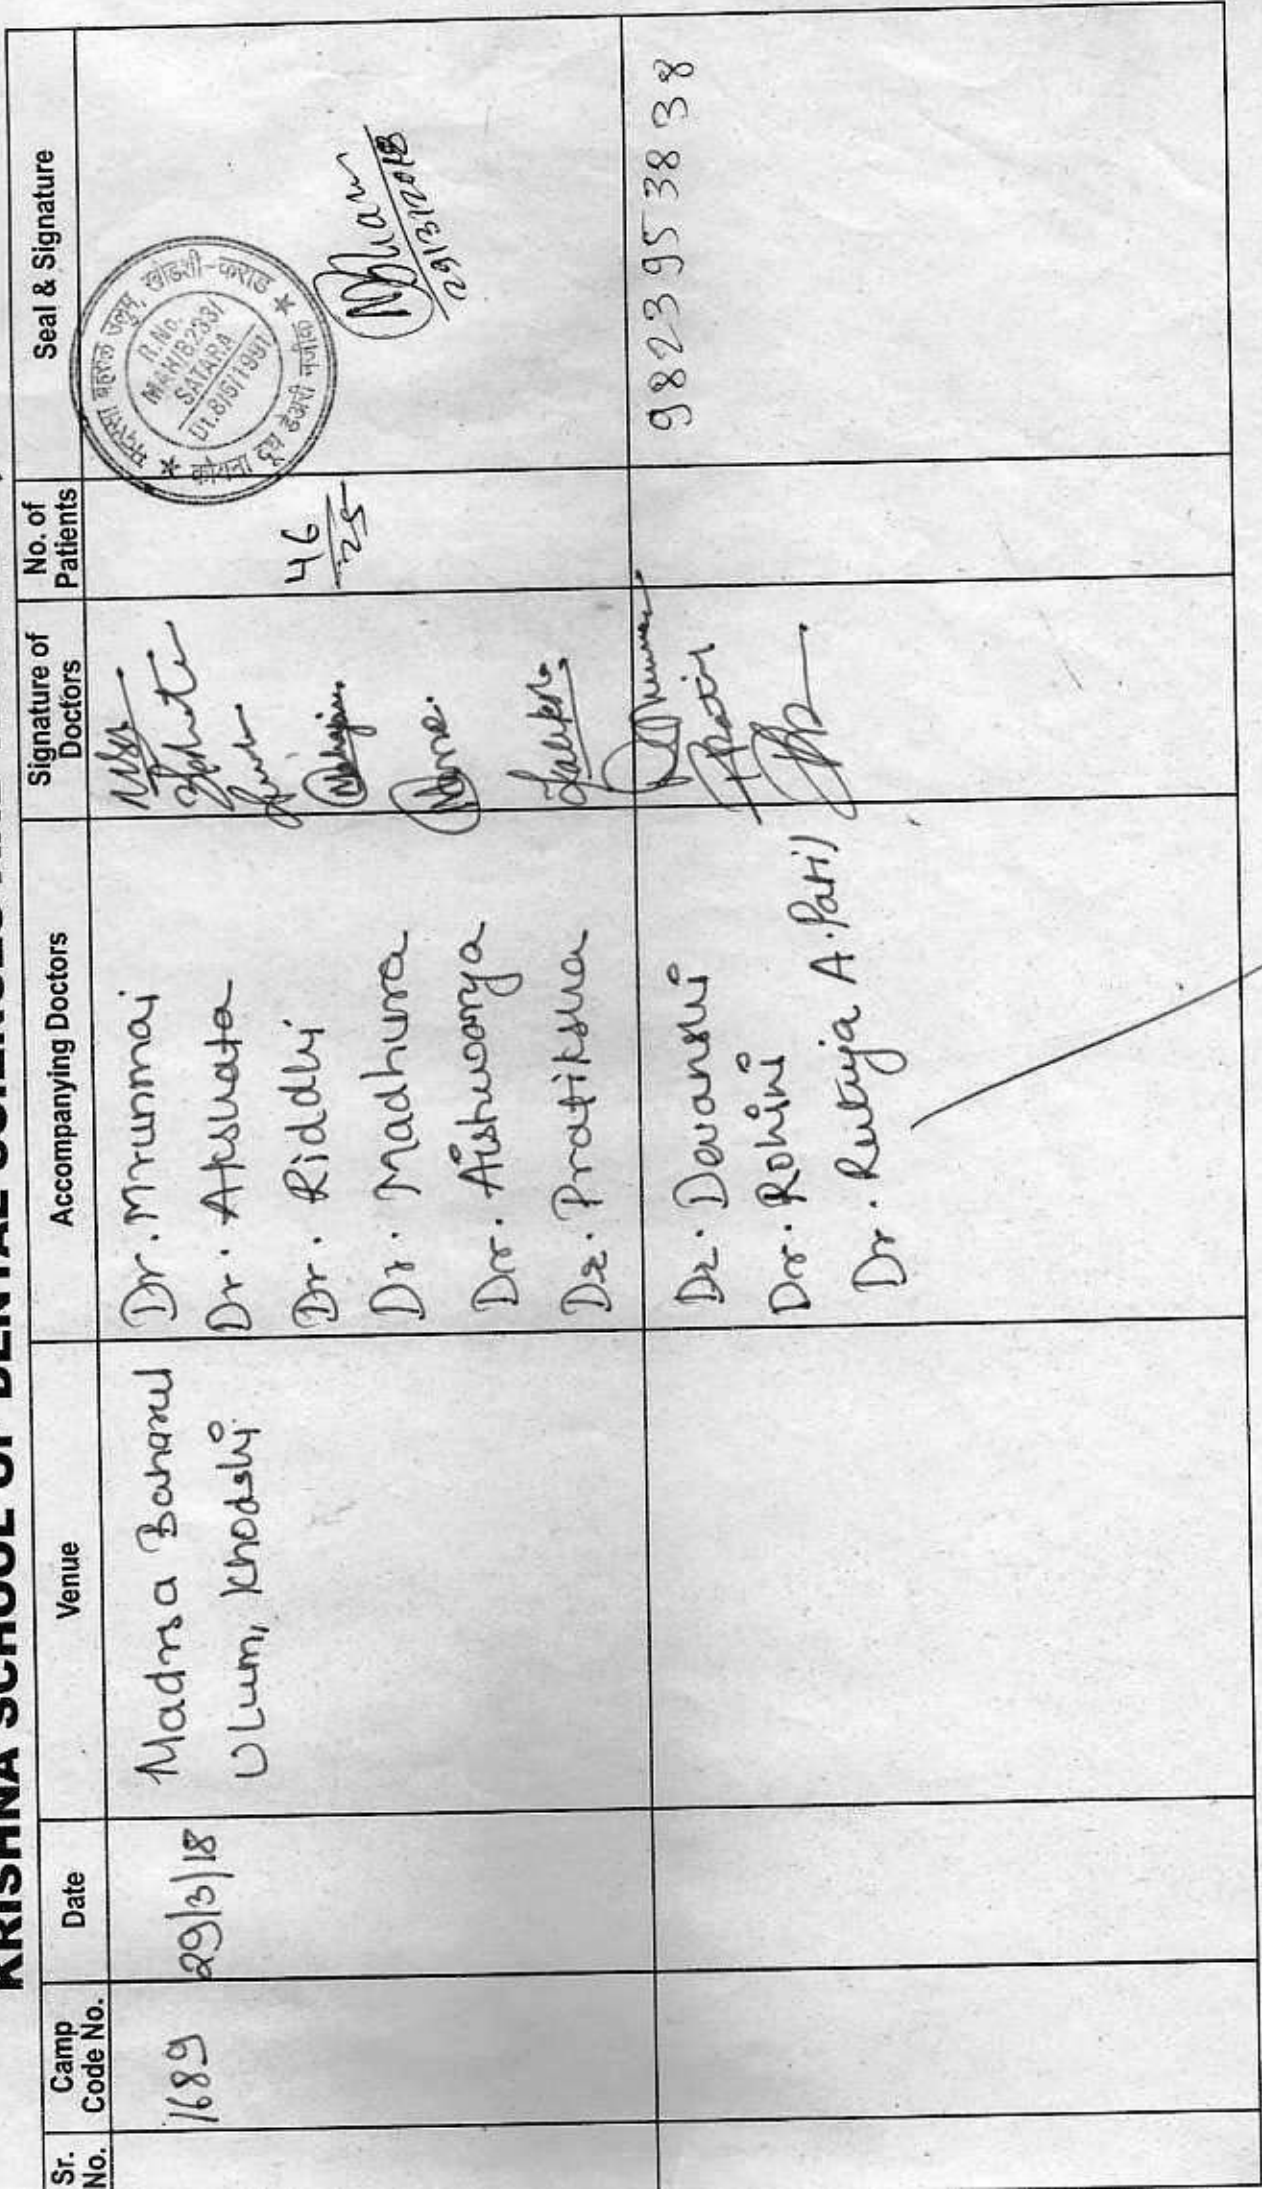 KRISHNA SCHOOL OF DENTAL SCIENCES
Sr. No.
Camp Code No.
Date
Venue
Accompanying Doctors
Signature of Doctors
No. of Patients
Seal & Signature
1689
29/3/18
Madrsa Baharul
Ulum, Khodshi
Dr. Mrunmai
Dr. Akshata
Dr. Riddhi
Dr. Madhura
Dr. Aishwarya
Dr. Pratiksha
46
25
मदरसा बहरुल उलुम, खोडशी-कराड
कोयना दूध डेअरी
R.No.
MAH/8233/
SATARA
Dt.8/6/1991
29/3/2018
Dr. Devanshi
Dr. Rohini
Dr. Rutuja A. Patil
Patil
9823953838